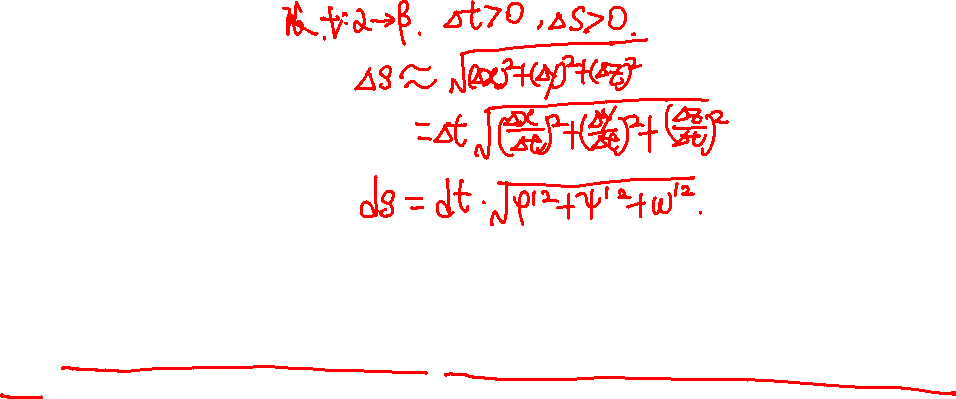 设 t: α→β. Δt>0, ΔS>0.
Δs ≈ √((Δx)²+(Δy)²+(Δz)²
= Δt √((Δx/Δt)²+(Δy/Δt)²+(Δz/Δt)²
ds = dt·√(φ'²+ψ'²+ω'²).